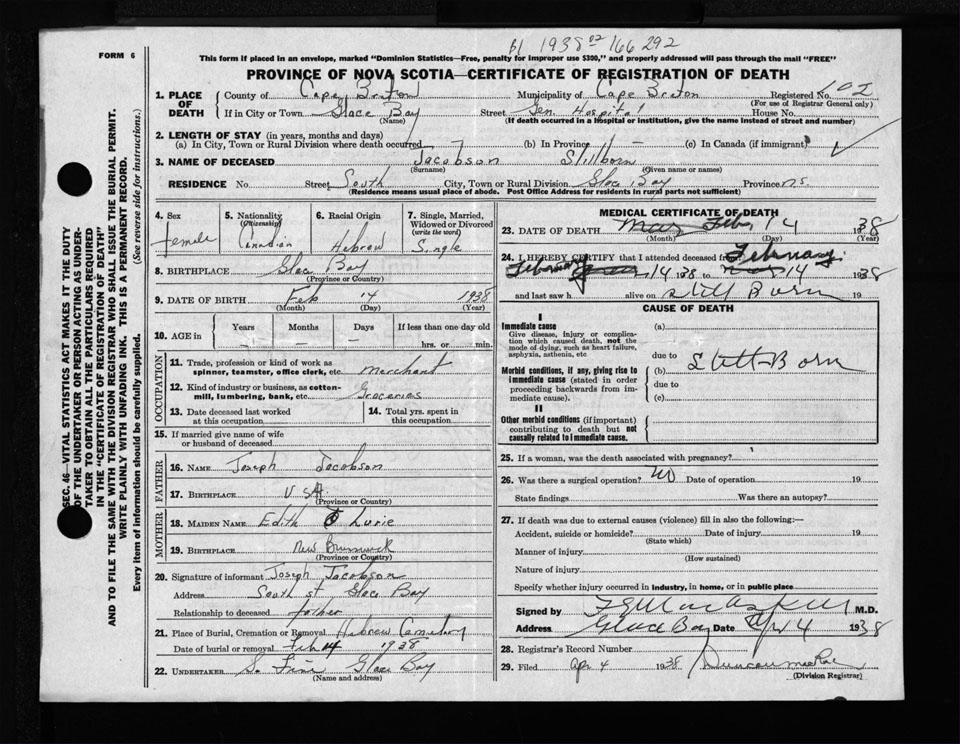 B1 1938 02 166 292
FORM 6
This form if placed in an envelope, marked "Dominion Statistics—Free, penalty for improper use $300," and properly addressed will pass through the mail "FREE"
PROVINCE OF NOVA SCOTIA—CERTIFICATE OF REGISTRATION OF DEATH
1. PLACE OF DEATH
County of Cape Breton Municipality of Cape Breton Registered No. 102
(For use of Registrar General only)
If in City or Town Glace Bay Street Gen Hospital House No.
(Name) (If death occurred in a hospital or institution, give the name instead of street and number)
2. LENGTH OF STAY (in years, months and days)
(a) In City, Town or Rural Division where death occurred (b) In Province (c) In Canada (if immigrant)
3. NAME OF DECEASED Jacobson Stillborn
(Surname) (Given name or names)
RESIDENCE No. Street South City, Town or Rural Division Glace Bay Province N.S.
(Residence means usual place of abode. Post Office Address for residents in rural parts not sufficient)
4. Sex
female
5. Nationality (Citizenship)
Canadian
6. Racial Origin
Hebrew
7. Single, Married, Widowed or Divorced (write the word)
Single
8. BIRTHPLACE Glace Bay
(Province or Country)
9. DATE OF BIRTH Feb 14 1938
(Month) (Day) (Year)
10. AGE in Years Months Days If less than one day old
– – – hrs. or min.
OCCUPATION
11. Trade, profession or kind of work as spinner, teamster, office clerk, etc. Merchant
12. Kind of industry or business, as cotton-mill, lumbering, bank, etc. Groceries
13. Date deceased last worked at this occupation
14. Total yrs. spent in this occupation
15. If married give name of wife or husband of deceased
FATHER
16. NAME Joseph Jacobson
17. BIRTHPLACE U.S.A.
(Province or Country)
MOTHER
18. MAIDEN NAME Edith Lurie
19. BIRTHPLACE New Brunswick
(Province or Country)
20. Signature of informant Joseph Jacobson
Address South St, Glace Bay
Relationship to deceased father
21. Place of Burial, Cremation or Removal Hebrew Cemetery
Date of burial or removal Feb 14 1938
22. UNDERTAKER S. Fine Glace Bay
(Name and address)
MEDICAL CERTIFICATE OF DEATH
23. DATE OF DEATH Feb. 14 1938
(Month) (Day) (Year)
24. I HEREBY CERTIFY that I attended deceased from
February 14 1938 to February 14 1938
and last saw h alive on Still Born 19
CAUSE OF DEATH
I
Immediate cause
Give disease, injury or complication which caused death, not the mode of dying, such as heart failure, asphyxia, asthenia, etc
(a)
due to
Morbid conditions, if any, giving rise to immediate cause (stated in order proceeding backwards from immediate cause).
(b) Still-Born
due to
(c)
II
Other morbid conditions (if important) contributing to death but not causally related to immediate cause.
25. If a woman, was the death associated with pregnancy?
26. Was there a surgical operation? No Date of operation 19
State findings Was there an autopsy?
27. If death was due to external causes (violence) fill in also the following:—
Accident, suicide or homicide? Date of injury 19
(State which)
Manner of injury
(How sustained)
Nature of injury
Specify whether injury occurred in industry, in home, or in public place
Signed by M.D.
Address Glace Bay Date Apr 4 1938
28. Registrar's Record Number
29. Filed Apr 4 1938
(Division Registrar)
SEC. 46—VITAL STATISTICS ACT MAKES IT THE DUTY
OF THE UNDERTAKER OR PERSON ACTING AS UNDER-
TAKER TO OBTAIN ALL THE PARTICULARS REQUIRED
IN THE "CERTIFICATE OF REGISTRATION OF DEATH"
AND TO FILE THE SAME WITH THE DIVISION REGISTRAR WHO SHALL ISSUE THE BURIAL PERMIT.
WRITE PLAINLY WITH UNFADING INK. THIS IS A PERMANENT RECORD.
Every item of information should be carefully supplied. (See reverse side for instructions.)